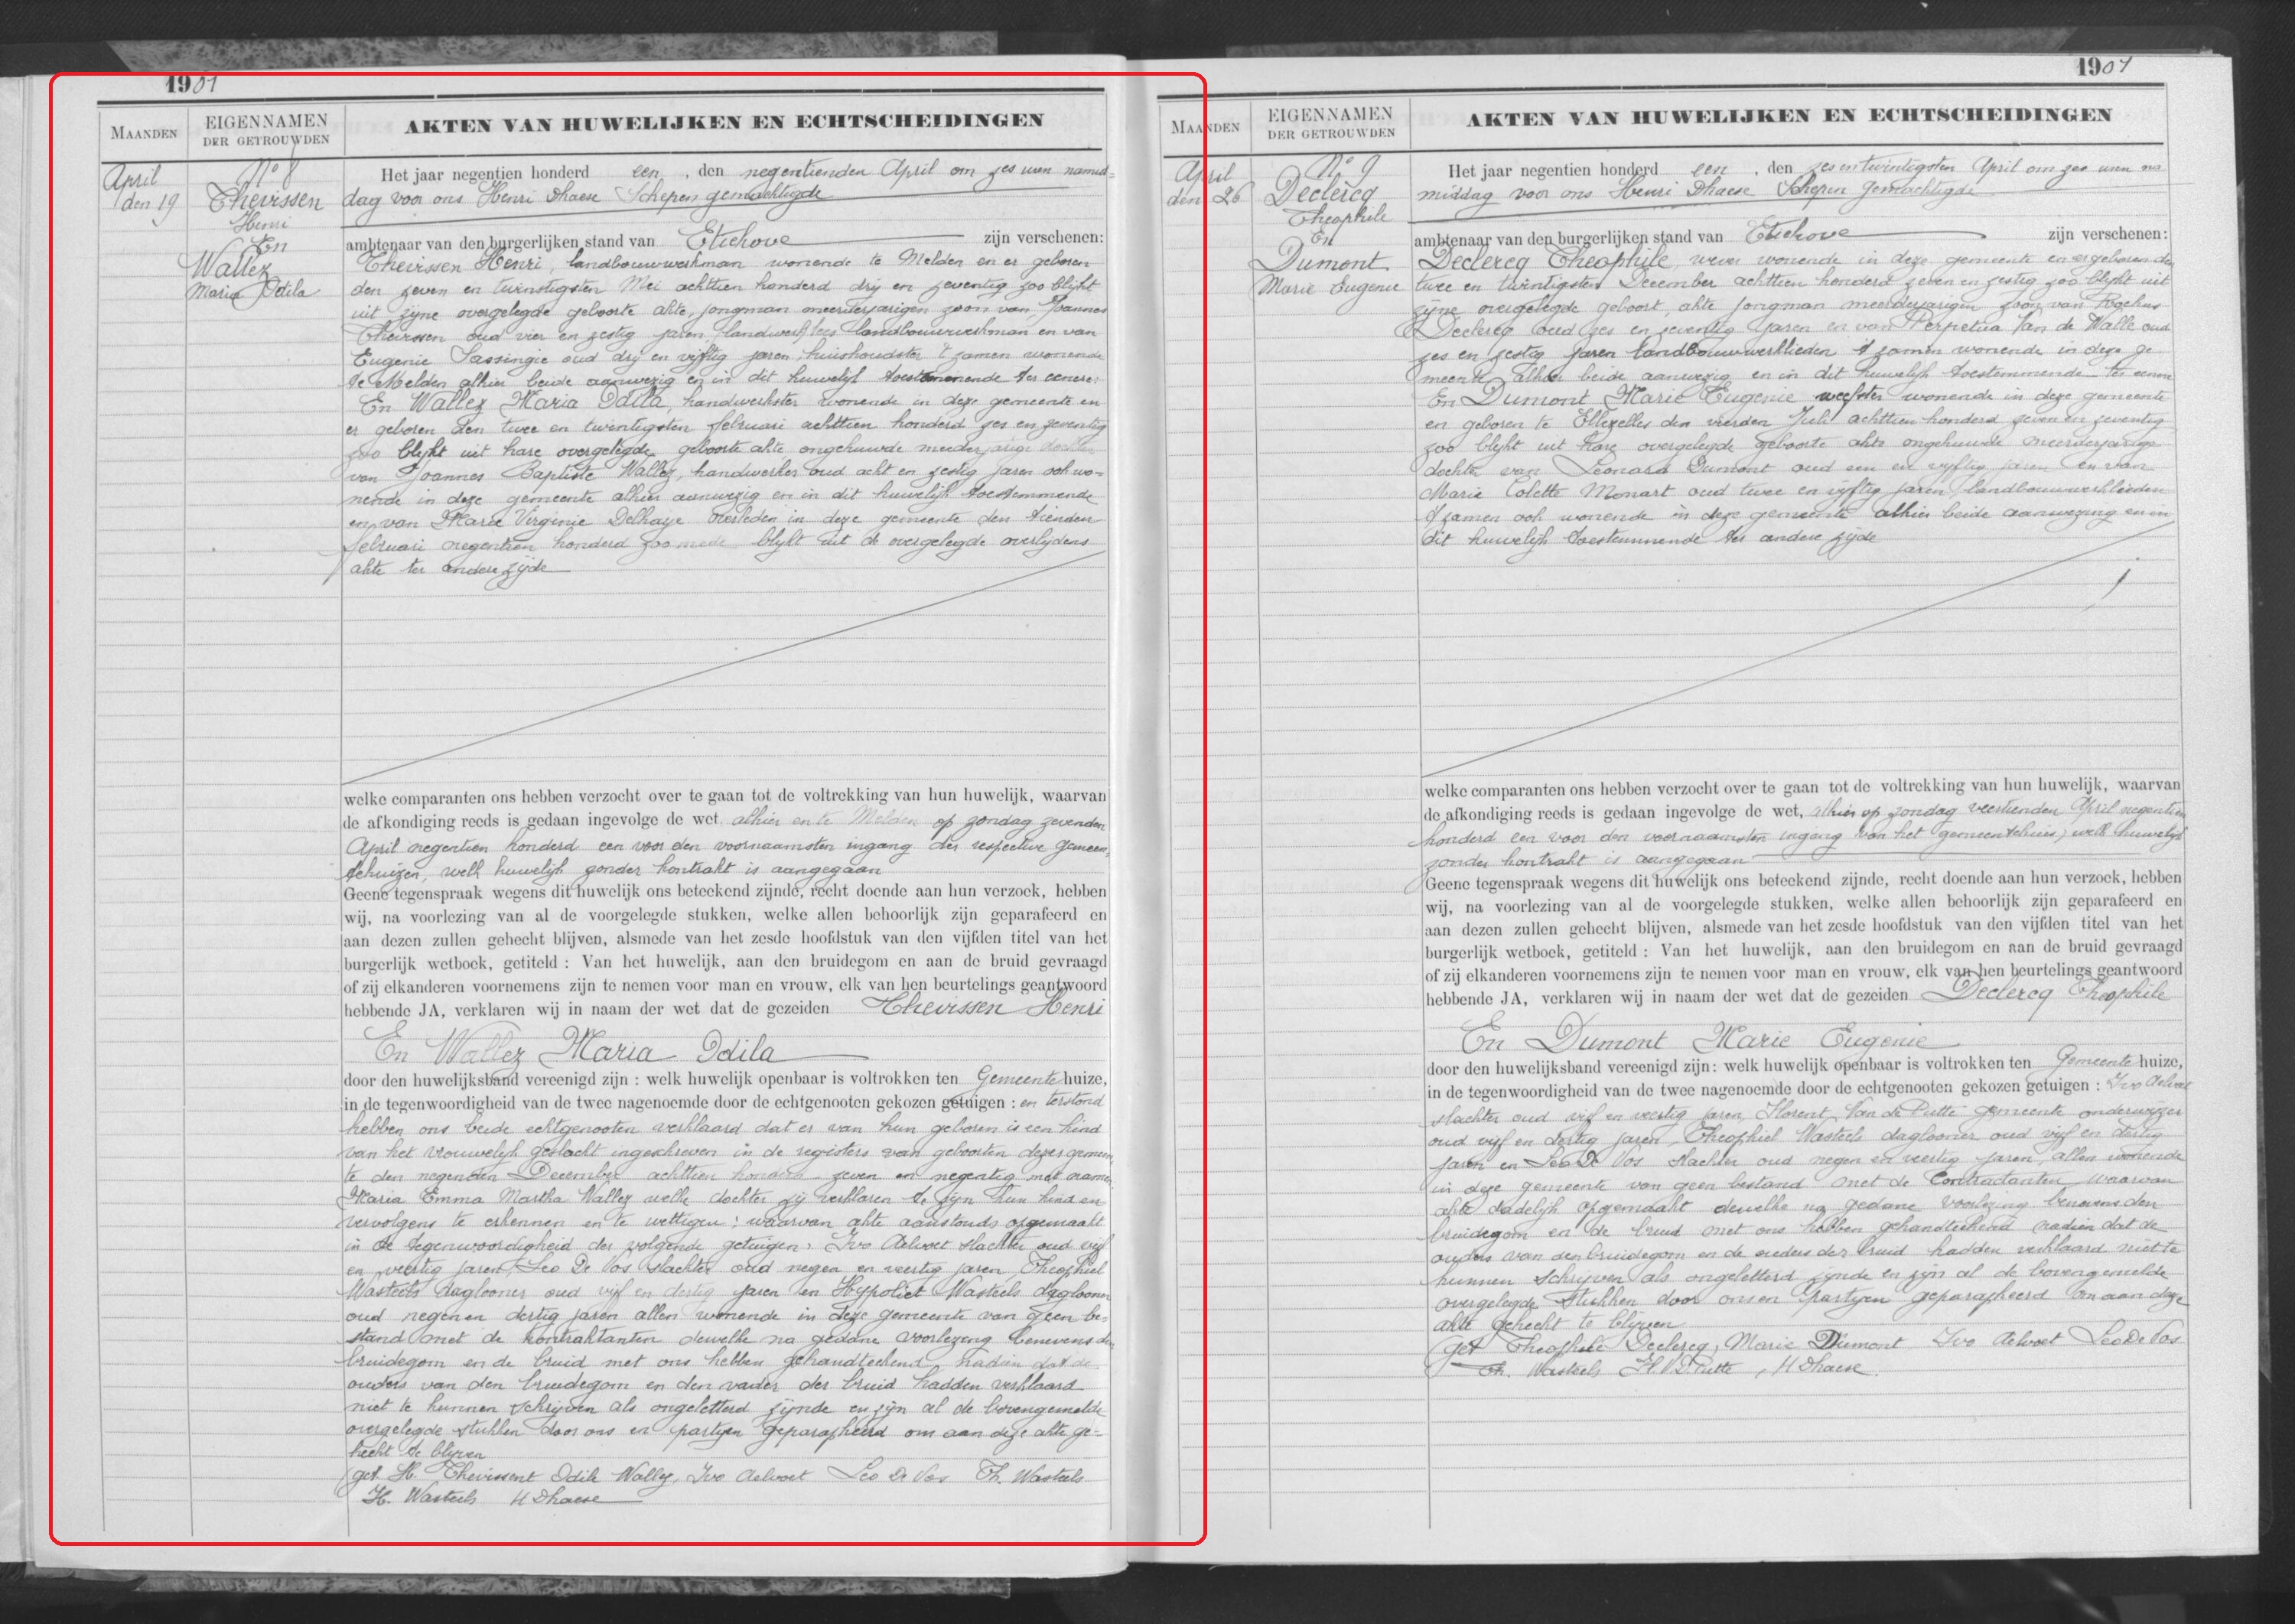 1901
MAANDEN
EIGENNAMEN
DER GETROUWDEN
AKTEN VAN HUWELIJKEN EN ECHTSCHEIDINGEN
April
den 19
N° 8
Thevissen
Henri
En
Wallez
Maria Odila
Het jaar negentien honderd een, den negentienden April om zes uren namid=
dag voor ons Henri Dhaese Schepen gemachtigde
ambtenaar van den burgerlijken stand van Etichove zijn verschenen:
Thevissen Henri, landbouwwerkman wonende te Melden en er geboren
den zeven en twintigsten Mei achttien honderd drij en zeventig zoo blijkt
uit zijne overgelegde geboorte akte, jongman meerderjarigen zoon van Joannes
Thevissen oud vier en zestig jaren, landbouwwerkman en van
Eugenie Sassingie oud drij en vijftig jaren, huishoudster t'zamen wonende
te Melden alhier beide aanwezig en in dit huwelijk toestemmende ter eenere:
En Wallez Maria Odila, handwerkster wonende in deze gemeente en
er geboren den twee en twintigsten februari achttien honderd zes en zeventig
zoo blijkt uit hare overgelegde geboorte akte, ongehuwde meerderjarige dochter
van Joannes Baptiste Wallez, handwerker oud acht en zestig jaren ook wo=
nende in deze gemeente alhier aanwezig en in dit huwelijk toestemmende
en van Marie Virginie Delhaye overleden in deze gemeente den tienden
februari negentien honderd zoo mede blijkt uit de overgelegde overlijdens
akte ter andere zijde
welke comparanten ons hebben verzocht over te gaan tot de voltrekking van hun huwelijk, waarvan
de afkondiging reeds is gedaan ingevolge de wet alhier en te Melden op zondag zevenden
April negentien honderd een voor den voornaamsten ingang der respective gemeen=
tehuizen, welk huwelijk zonder kontrakt is aangegaan
Geene tegenspraak wegens dit huwelijk ons beteekend zijnde, recht doende aan hun verzoek, hebben
wij, na voorlezing van al de voorgelegde stukken, welke allen behoorlijk zijn geparafeerd en
aan dezen zullen gehecht blijven, alsmede van het zesde hoofdstuk van den vijfden titel van het
burgerlijk wetboek, getiteld : Van het huwelijk, aan den bruidegom en aan de bruid gevraagd
of zij elkanderen voornemens zijn te nemen voor man en vrouw, elk van hen beurtelings geantwoord
hebbende JA, verklaren wij in naam der wet dat de gezeiden Thevissen Henri
En Wallez Maria Odila
door den huwelijksband vereenigd zijn : welk huwelijk openbaar is voltrokken ten Gemeentehuize,
in de tegenwoordigheid van de twee nagenoemde door de echtgenooten gekozen getuigen : en terstond
hebben ons beide echtgenooten verklaard dat er van hun geboren is een kind
van het vrouwelijk geslacht ingeschreven in de registers van geboorten dezer gemeen
te den negenden December achttien honderd zeven en negentig met name
Maria Emma Martha Wallez welke dochter zij verklaren te zijn hun kind en
vervolgens te erkennen en te wettigen ; waarvan akte aanstonds opgemaakt
in de tegenwoordigheid der volgende getuigen, Ivo Aelvoet slachter oud vijf
en veertig jaren, Leo De Vos slachter oud negen en veertig jaren, Theophiel
Wasteels daglooner oud vijf en dertig jaren en Hypoliet Wasteels daglooner
oud negen en dertig jaren allen wonende in deze gemeente van geen be=
stand met de kontraktanten dewelke na gedane voorlezing benevens den
bruidegom en de bruid met ons hebben gehandteekend nadien dat de
ouders van den bruidegom en den vader der bruid hadden verklaard
niet te kunnen schrijven als ongeletterd zijnde en zijn al de bovengemelde
overgelegde stukken door ons en partijen geparapheerd om aan deze akte ge=
hecht te blijven
get. H. Thevissent Odile Wallez, Ivo Aelvoet Leo De Vos Th. Wasteels
H. Wasteels H Dhaese
1901
MAANDEN
EIGENNAMEN
DER GETROUWDEN
AKTEN VAN HUWELIJKEN EN ECHTSCHEIDINGEN
April
den 26
N° 9
Declercq
Theophile
En
Dumont
Marie Eugenie
Het jaar negentien honderd een, den zes en twintigsten April om zes uren na
middag voor ons Henri Dhaese Schepen gemachtigde
ambtenaar van den burgerlijken stand van Etichove zijn verschenen:
Declercq Theophile, wever wonende in deze gemeente en er geboren den
twee en twintigsten December achttien honderd zeven en zestig zoo blijkt uit
zijne overgelegde geboort akte jongman meerderjarigen zoon van Rochus
Declercq oud zes en zeventig jaren en van Perpetua Van de Walle oud
zes en zestig jaren landbouwwerklieden t'zamen wonende in deze ge
meente alhier beide aanwezig en in dit huwelijk toestemmende ter eenre
En Dumont Marie Eugenie weefster wonende in deze gemeente
en geboren te Ellezelles den vierden Juli achttien honderd zeven en zeventig
zoo blijkt uit hare overgelegde geboorte akte ongehuwde meerderjarige
dochter van Leonard Dumont oud een en vijftig jaren en van
Marie Colette Monart oud twee en vijftig jaren, landbouwwerklieden
t'zamen ook wonende in deze gemeente alhier beide aanwezig en in
dit huwelijk toestemmende ter andere zijde
welke comparanten ons hebben verzocht over te gaan tot de voltrekking van hun huwelijk, waarvan
de afkondiging reeds is gedaan ingevolge de wet, alhier op zondag veertienden April negentien
honderd een voor den voornaamsten ingang van het gemeentehuis, welk huwelijk
zonder kontrakt is aangegaan
Geene tegenspraak wegens dit huwelijk ons beteekend zijnde, recht doende aan hun verzoek, hebben
wij, na voorlezing van al de voorgelegde stukken, welke allen behoorlijk zijn geparafeerd en
aan dezen zullen gehecht blijven, alsmede van het zesde hoofdstuk van den vijfden titel van het
burgerlijk wetboek, getiteld : Van het huwelijk, aan den bruidegom en aan de bruid gevraagd
of zij elkanderen voornemens zijn te nemen voor man en vrouw, elk van hen beurtelings geantwoord
hebbende JA, verklaren wij in naam der wet dat de gezeiden Declercq Theophile
En Dumont Marie Eugenie
door den huwelijksband vereenigd zijn : welk huwelijk openbaar is voltrokken ten Gemeentehuize,
in de tegenwoordigheid van de twee nagenoemde door de echtgenooten gekozen getuigen : Ivo Aelvoet
slachter oud vijf en veertig jaren, Florent Van de Putte gemeente onderwijzer
oud vijf en dertig jaren, Theophiel Wasteels daglooner oud vijf en dertig
jaren en Leo De Vos slachter oud negen en veertig jaren, allen wonende
in deze gemeente van geen bestand met de Contractanten, waarvan
akte dadelijk opgemaakt dewelke na gedane voorlezing benevens den
bruidegom en de bruid met ons hebben gehandteekend nadien dat de
ouders van den bruidegom en de ouders der bruid hadden verklaard niet te
kunnen schrijven als ongeletterd zijnde en zijn al de bovengemelde
overgelegde stukken door ons en partijen geparapheerd om aan deze
akte gehecht te blijven
get Theophile Declercq, Marie Dumont Ivo Aelvoet Leo De Vos
Th. Wasteels Fl. V D Putte, H Dhaese.